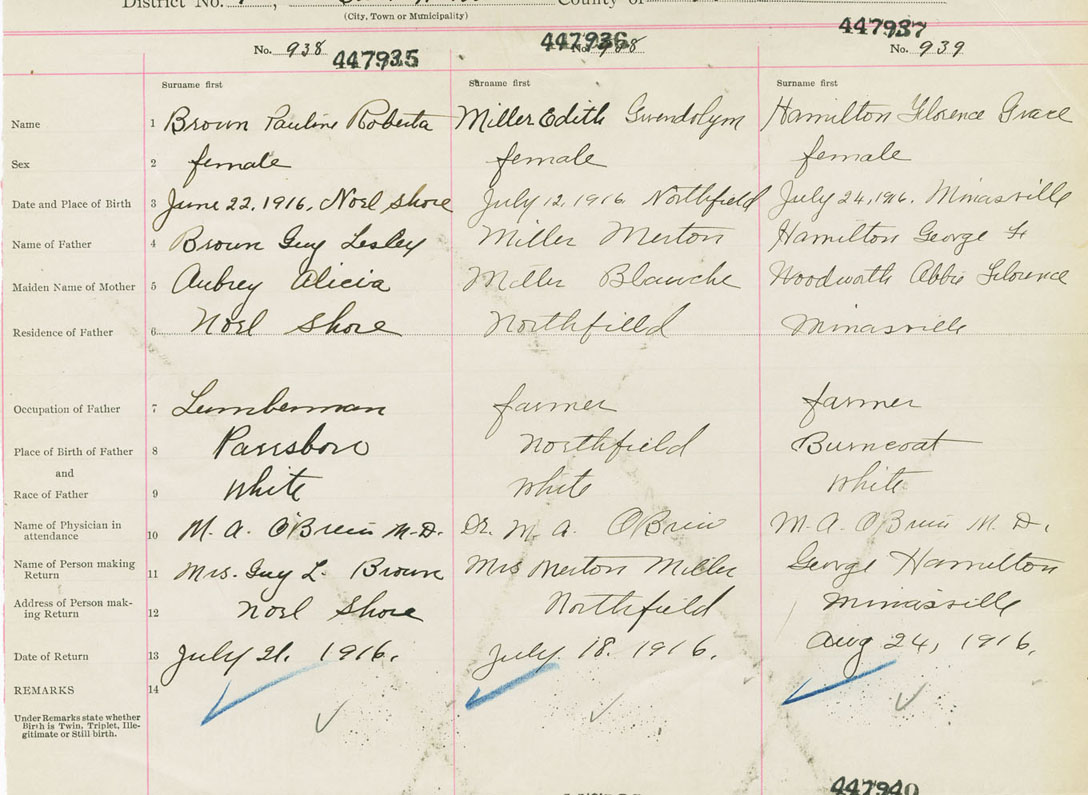 District No. County of
(City, Town or Municipality)
No. 938 447935 447936 No. 447937 No. 939
Surname first Surname first Surname first
Name 1 Brown Pauline Roberta Miller Edith Gwendolym Hamilton Florence Grace
Sex 2 female female female
Date and Place of Birth 3 June 22, 1916, Noel Shore July 12, 1916 Northfield July 24, 1916. Minasville
Name of Father 4 Brown Guy Lesley Miller Merton Hamilton George
Maiden Name of Mother 5 Aubrey Alicia Miller Blanche Woodworth Abbie Florence
Residence of Father 6 Noel Shore Northfield Minasville
Occupation of Father 7 Lumberman farmer farmer
Place of Birth of Father 8 Parrsboro Northfield Burncoat
and
Race of Father 9 White White White
Name of Physician in
attendance 10 M. A. O'Brien M.D. Dr. M. A. O'Brien M. A. O'Brien M. D.
Name of Person making
Return 11 Mrs. Guy L. Brown Mrs Merton Miller George Hamilton
Address of Person mak-
ing Return 12 Noel Shore Northfield Minasville
Date of Return 13 July 21, 1916. July 18. 1916. Aug 24, 1916.
REMARKS 14
Under Remarks state whether
Birth is Twin, Triplet, Ille-
gitimate or Still birth.
447940